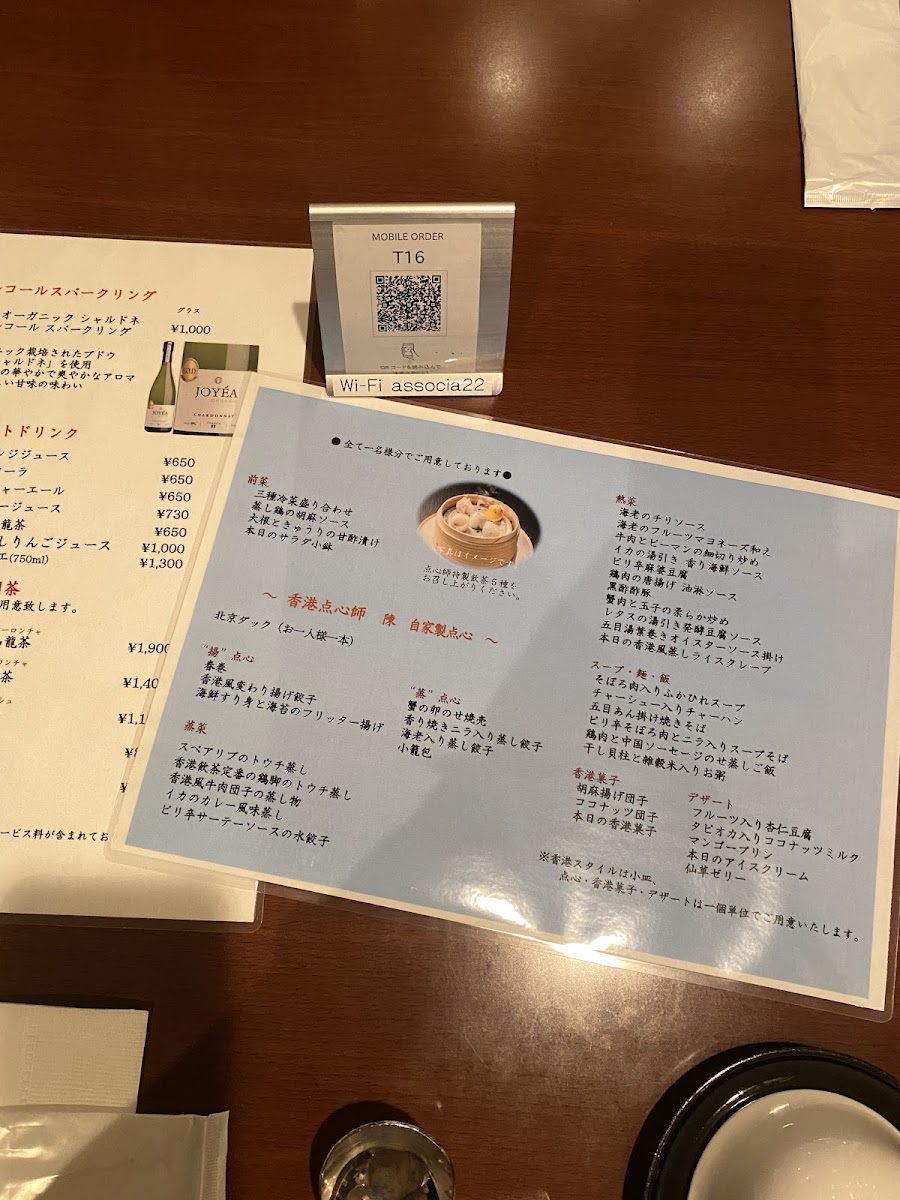 MOBILE ORDER
T16
Wi-Fi associa22
コールスパークリング
グラス
オーガニック シャルドネ
コール スパークリング ¥1,000
ック栽培されたブドウ
ャルドネ」を使用
の華やかで爽やかなアロマ
い甘味の味わい
JOYÉA
CHARDONNAY
トドリンク
ンジジュース ¥650
ーラ ¥650
ャーエール ¥650
ージュース ¥730
龍茶 ¥650
しりんごジュース ¥1,000
エ(750ml) ¥1,300
茶
用意致します。
ーロンチャ
烏龍茶 ¥1,900
ロンチャ
茶 ¥1,40
シュ
¥1,1
ービス料が含まれてお
●全て一名様分でご用意しております●
前菜
三種冷菜盛り合わせ
蒸し鶏の胡麻ソース
大根ときゅうりの甘酢漬け
本日のサラダ小鉢
写真はイメージです
点心師特製飲茶5種を
お召し上がりください。
～ 香港点心師 陳 自家製点心 ～
北京ダック（お一人様一本）
“揚”点心
春巻
香港風変わり揚げ餃子
海鮮すり身と海苔のフリッター揚げ
“蒸”点心
蟹の卵のせ焼売
香り焼きニラ入り蒸し餃子
海老入り蒸し餃子
小籠包
蒸菜
スペアリブのトウチ蒸し
香港飲茶定番の鶏脚のトウチ蒸し
香港風牛肉団子の蒸し物
イカのカレー風味蒸し
ピリ辛サーテーソースの水餃子
熱菜
海老のチリソース
海老のフルーツマヨネーズ和え
牛肉とピーマンの細切り炒め
イカの湯引き 香り海鮮ソース
ピリ辛麻婆豆腐
鶏肉の唐揚げ 油淋ソース
黒酢酢豚
蟹肉と玉子の柔らか炒め
レタスの湯引き発酵豆腐ソース
五目湯葉巻きオイスターソース掛け
本日の香港風蒸しライスクレープ
スープ・麺・飯
そぼろ肉入りふかひれスープ
チャーシュー入りチャーハン
五目あん掛け焼きそば
ピリ辛そぼろ肉とニラ入りスープそば
鶏肉と中国ソーセージのせ蒸しご飯
干し貝柱と雑穀米入りお粥
香港菓子
胡麻揚げ団子
ココナッツ団子
本日の香港菓子
デザート
フルーツ入り杏仁豆腐
タピオカ入りココナッツミルク
マンゴープリン
本日のアイスクリーム
仙草ゼリー
※香港スタイルは小皿、
点心・香港菓子・デザートは一個単位でご用意いたします。